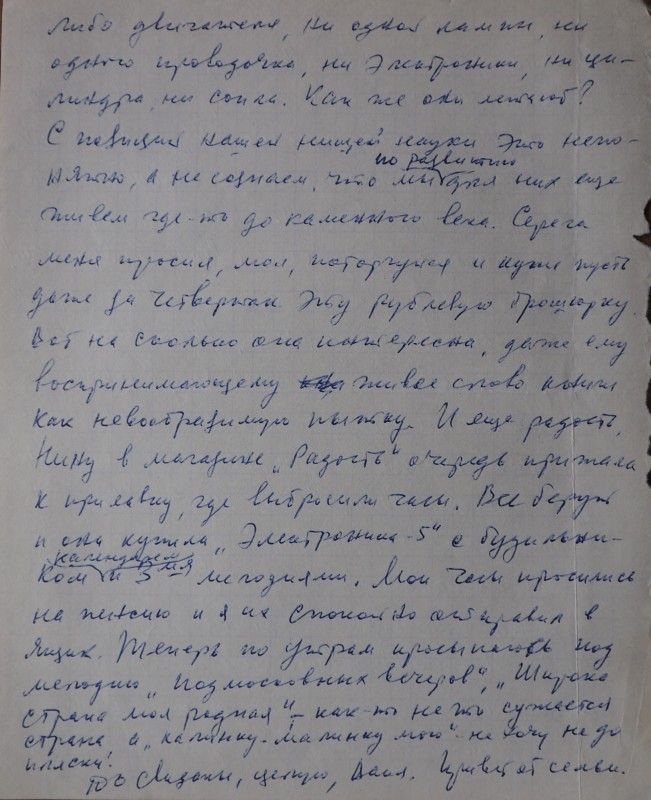 либо двигателя, ни одной лампы, ни
одного проводочка, ни электроники, ни ци-
линдра, ни сопла. Как же они летают?
С позиций нашей нищей науки это непо-
по развитию
нятно, а не сознаем, что мы для них еще
живем где-то до каменного века. Серега
меня просил, мол, поторгуйся и купи пусть
даже за четвертак эту рублевую брошюрку.
Вот на сколько она интересна, даже ему
воспринимающему живое слово книги
как невообразимую пытку. И еще радость,
Нину в магазине „Радость" очередь прижала
к прилавку, где выбросили часы. Все берут
и она купила „Электроника-5" с будильни-
календарем
ком и 5мя мелодиями. Мои часы просились
на пенсию и я их спокойно отправил в
ящик. Теперь по утрам просыпаюсь под
мелодию „Подмосковных вечеров", „Широка
страна моя родная" – как-то не то сужается
страна, а „калинку-малинку мою" – не хочу не до
пляски!
До свиданья, целую, Ваня. Привет от семьи.